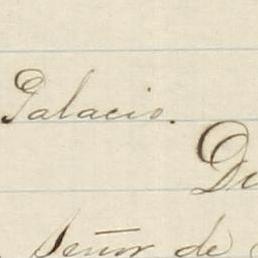 Palacio.
Señor de